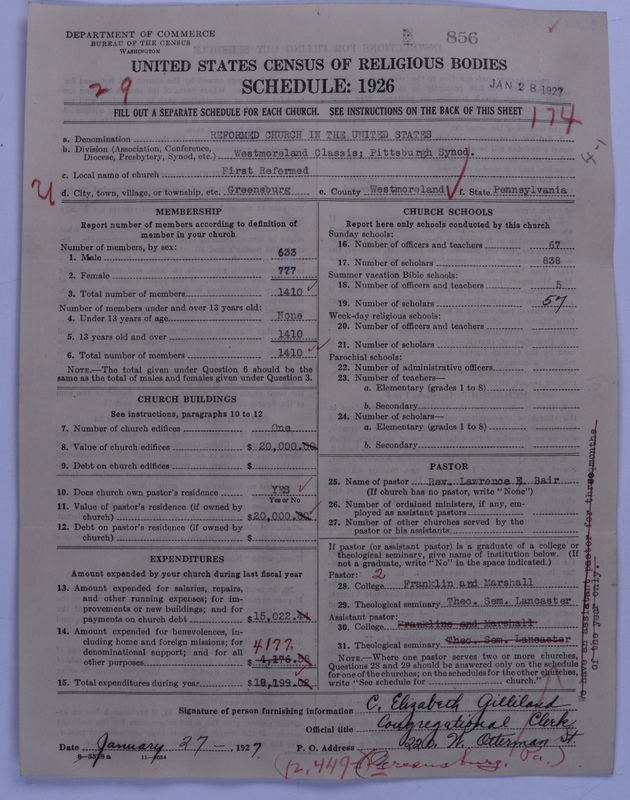 DEPARTMENT OF COMMERCE
BUREAU OF THE CENSUS
WASHINGTON
856
UNITED STATES CENSUS OF RELIGIOUS BODIES
SCHEDULE: 1926
JAN 28 1927
29
174
FILL OUT A SEPARATE SCHEDULE FOR EACH CHURCH. SEE INSTRUCTIONS ON THE BACK OF THIS SHEET
4-1
a. Denomination REFORMED CHURCH IN THE UNITED STATES
b. Division (Association, Conference, Diocese, Presbytery, Synod, etc.) Westmoreland Classis; Pittsburgh Synod.
c. Local name of church First Reformed
d. City, town, village, or township, etc. Greensburg e. County Westmoreland f. State Pennsylvania
MEMBERSHIP
Report number of members according to definition of
member in your church
Number of members, by sex:
1. Male 633
2. Female 777
3. Total number of members 1410
Number of members under and over 13 years old:
4. Under 13 years of age None
5. 13 years old and over 1410
6. Total number of members 1410
NOTE.—The total given under Question 6 should be
same as the total of males and females given under Question 3.
CHURCH BUILDINGS
See instructions, paragraphs 10 to 12
7. Number of church edifices One
8. Value of church edifices $ 20,000.00
9. Debt on church edifices $
10. Does church own pastor's residence YES
Yes or No
11. Value of pastor's residence (if owned by
church) $20,000.00
12. Debt on pastor's residence (if owned by
church) $
EXPENDITURES
Amount expended by your church during last fiscal year
13. Amount expended for salaries, repairs,
and other running expenses; for im-
provements or new buildings; and for
payments on church debt $15,022.
14. Amount expended for benevolences, in-
cluding home and foreign missions; for
denominational support; and for all
other purposes $ 4,176.
4177
15. Total expenditures during year $ 19,199.
CHURCH SCHOOLS
Report here only schools conducted by this church
Sunday schools:
16. Number of officers and teachers 67
17. Number of scholars 838
Summer vacation Bible schools:
18. Number of officers and teachers 5
19. Number of scholars 57
Week-day religious schools:
20. Number of officers and teachers
21. Number of scholars
Parochial schools:
22. Number of administrative officers
23. Number of teachers—
a. Elementary (grades 1 to 8)
b. Secondary
24. Number of scholars—
a. Elementary (grades 1 to 8)
b. Secondary
PASTOR
25. Name of pastor Rev. Lawrence E. Bair
(If church has no pastor, write "None")
26. Number of ordained ministers, if any, em-
ployed as assistant pastors
27. Number of other churches served by the
pastor or his assistants
If pastor (or assistant pastor) is a graduate of a college or
theological seminary, give name of institution below. (If
not a graduate, write "No" in the space indicated.)
Pastor: 2
28. College Franklin and Marshall
29. Theological seminary Theo. Sem. Lancaster
Assistant pastor:
30. College Franklins and Marshall
31. Theological seminary Theo. Sem. Lancaster
NOTE.—Where one pastor serves two or more churches,
Questions 28 and 29 should be answered only on the schedule
for one of the churches; on the schedules for the other churches,
write "See schedule for church."
We have an assistant pastor for three months
of the year only.
Signature of person furnishing information C. Elizabeth Gilliland
Official title Congregational Clerk
Date January 27 - , 1927 P. O. Address W. Otterman St
11-8554
(12,449 - Greensburg, Pa.)